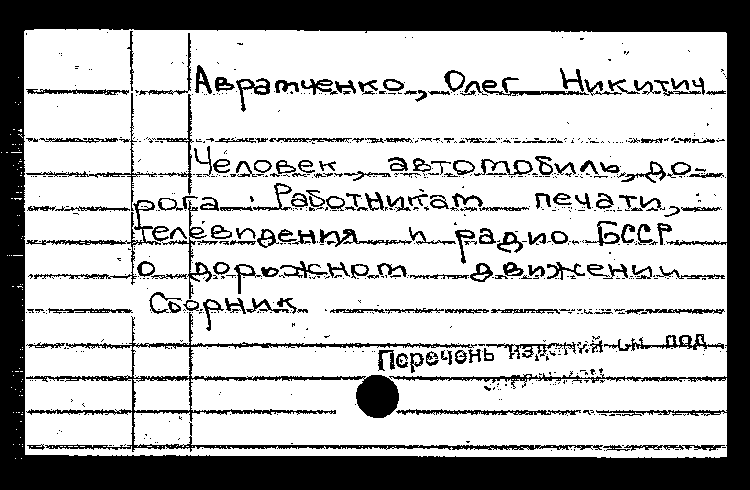 Авратченко, Олег Никитич
Человек, автомобиль, до-
рога : Работникам печати,
телевидения и радио БССР
о дорожном движении
Сборник
Перечень изданий см. под
заглавием